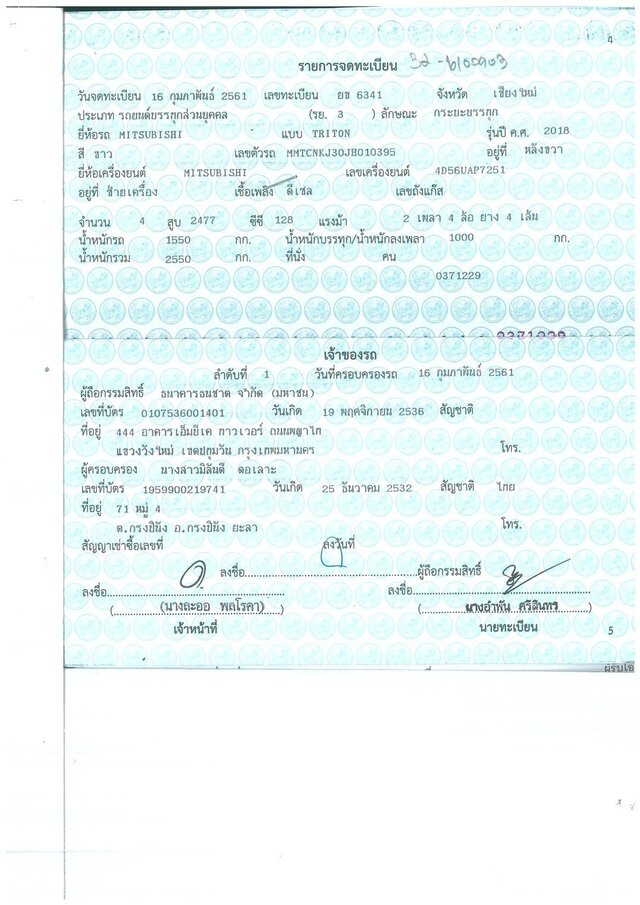 4
รายการจดทะเบียน
วันจดทะเบียน 16 กุมภาพันธ์ 2561 เลขทะเบียน ยข 6341 จังหวัด เชียงใหม่
ประเภท รถยนต์บรรทุกส่วนบุคคล (รย. 3 ) ลักษณะ กระบะบรรทุก
ยี่ห้อรถ MITSUBISHI แบบ TRITON รุ่นปี ค.ศ. 2018
สี ขาว เลขตัวรถ MMTCNKJ30JH010395 อยู่ที่ หลังขวา
ยี่ห้อเครื่องยนต์ MITSUBISHI เลขเครื่องยนต์ 4D56UAP7251
อยู่ที่ ซ้ายเครื่อง เชื้อเพลิง ดีเซล เลขถังแก๊ส
จำนวน 4 สูบ 2477 ซีซี 128 แรงม้า 2 เพลา 4 ล้อ ยาง 4 เส้น
น้ำหนักรถ 1550 กก. น้ำหนักบรรทุก/น้ำหนักลงเพลา 1000 กก.
น้ำหนักรวม 2550 กก. ที่นั่ง คน
0371229
เจ้าของรถ
ลำดับที่ 1 วันที่ครอบครองรถ 16 กุมภาพันธ์ 2561
ผู้ถือกรรมสิทธิ์ ธนาคารธนชาต จำกัด (มหาชน)
เลขที่บัตร 0107536001401 วันเกิด 19 พฤศจิกายน 2536 สัญชาติ
ที่อยู่ 444 อาคารเอ็มบีเค ทาวเวอร์ ถนนพญาไท
แขวงวังใหม่ เขตปทุมวัน กรุงเทพมหานคร โทร.
ผู้ครอบครอง นางสาววิลันดี ดอเลาะ
เลขที่บัตร 1959900219741 วันเกิด 25 ธันวาคม 2532 สัญชาติ ไทย
ที่อยู่ 71 หมู่ 4
ต.กรงปินัง อ.กรงปินัง ยะลา โทร.
สัญญาเช่าซื้อเลขที่ ลงวันที่
ลงชื่อ ผู้ถือกรรมสิทธิ์
ลงชื่อ ลงชื่อ
(นางละออ พลโรคา) นางอำพัน ศรีอินทร
เจ้าหน้าที่ นายทะเบียน
5